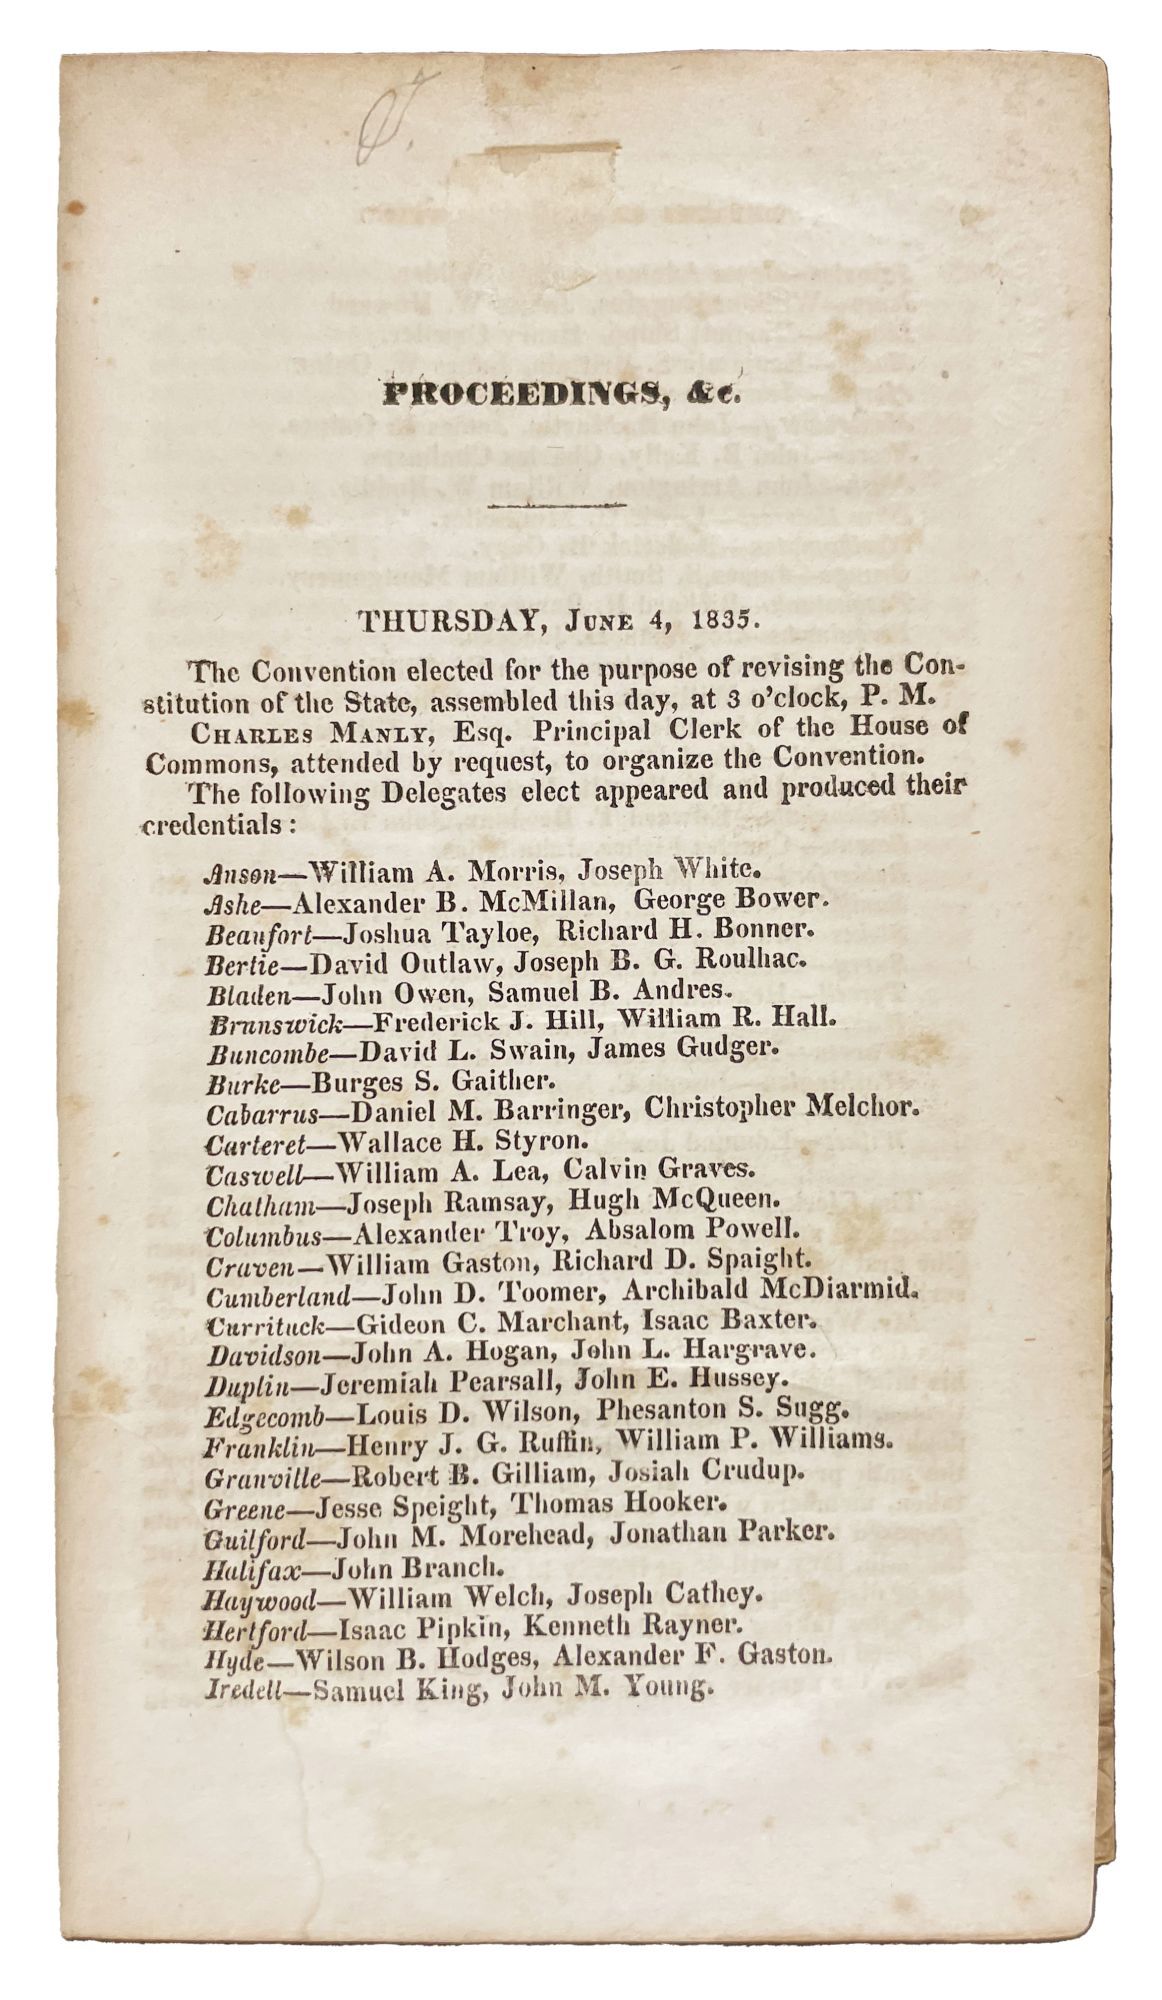 PROCEEDINGS, &c.
THURSDAY, JUNE 4, 1835.
The Convention elected for the purpose of revising the Con-
stitution of the State, assembled this day, at 3 o'clock, P. M.
CHARLES MANLY, Esq. Principal Clerk of the House of
Commons, attended by request, to organize the Convention.
The following Delegates elect appeared and produced their
credentials:
Anson—William A. Morris, Joseph White.
Ashe—Alexander B. McMillan, George Bower.
Beaufort—Joshua Tayloe, Richard H. Bonner.
Bertie—David Outlaw, Joseph B. G. Roulhac.
Bladen—John Owen, Samuel B. Andres.
Brunswick—Frederick J. Hill, William R. Hall.
Buncombe—David L. Swain, James Gudger.
Burke—Burges S. Gaither.
Cabarrus—Daniel M. Barringer, Christopher Melchor.
Carteret—Wallace H. Styron.
Caswell—William A. Lea, Calvin Graves.
Chatham—Joseph Ramsay, Hugh McQueen.
Columbus—Alexander Troy, Absalom Powell.
Craven—William Gaston, Richard D. Spaight.
Cumberland—John D. Toomer, Archibald McDiarmid.
Currituck—Gideon C. Marchant, Isaac Baxter.
Davidson—John A. Hogan, John L. Hargrave.
Duplin—Jeremiah Pearsall, John E. Hussey.
Edgecomb—Louis D. Wilson, Phesanton S. Sugg.
Franklin—Henry J. G. Ruffin, William P. Williams.
Granville—Robert B. Gilliam, Josiah Crudup.
Greene—Jesse Speight, Thomas Hooker.
Guilford—John M. Morehead, Jonathan Parker.
Halifax—John Branch.
Haywood—William Welch, Joseph Cathey.
Hertford—Isaac Pipkin, Kenneth Rayner.
Hyde—Wilson B. Hodges, Alexander F. Gaston.
Iredell—Samuel King, John M. Young.